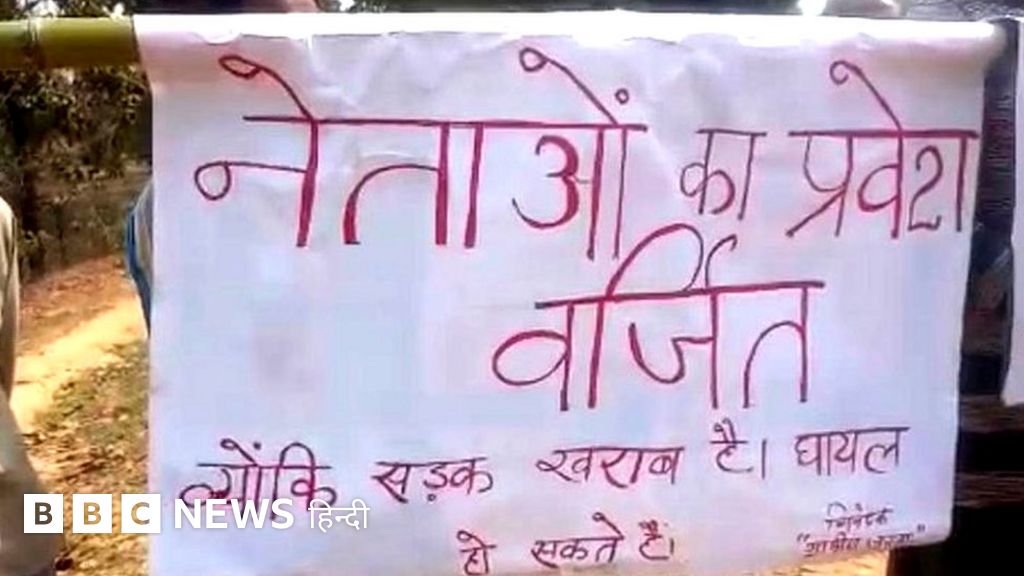 नेताओं का प्रवेश
वर्जित
क्योंकि सड़क खराब है। घायल
हो सकते हैं।
निवेदक
BBC NEWS हिन्दी